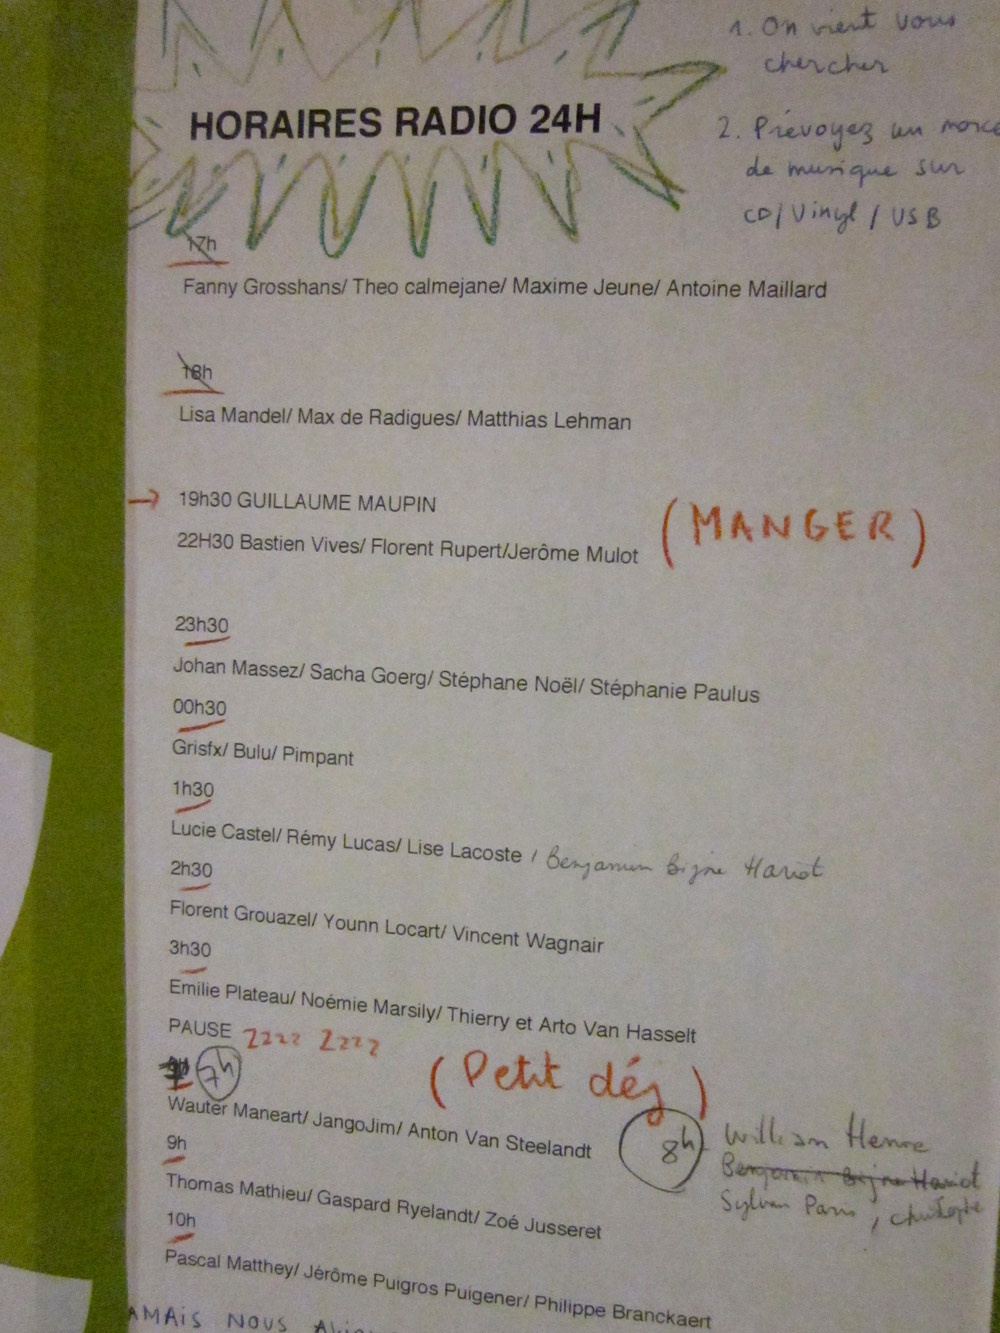 1. On vient vous
chercher
HORAIRES RADIO 24H
2. Prévoyez un morce
de musique sur
CD/Vinyl/USB
17h
Fanny Grosshans/ Theo calmejane/ Maxime Jeune/ Antoine Maillard
18h
Lisa Mandel/ Max de Radigues/ Matthias Lehman
→ 19h30 GUILLAUME MAUPIN
(MANGER)
22H30 Bastien Vives/ Florent Rupert/Jerôme Mulot
23h30
Johan Massez/ Sacha Goerg/ Stéphane Noël/ Stéphanie Paulus
00h30
Grisfx/ Bulu/ Pimpant
1h30
Lucie Castel/ Rémy Lucas/ Lise Lacoste / Benjamin Bijne Hariot
2h30
Florent Grouazel/ Younn Locart/ Vincent Wagnair
3h30
Emilie Plateau/ Noémie Marsily/ Thierry et Arto Van Hasselt
PAUSE zzzz zzzz
7h
(Petit déj)
Wauter Maneart/ JangoJim/ Anton Van Steelandt
8h William Henne
Benjamin Bijne Hariot
Sylvan Paris, christophe
9h
Thomas Mathieu/ Gaspard Ryelandt/ Zoé Jusseret
10h
Pascal Matthey/ Jérôme Puigros Puigener/ Philippe Branckaert
AMAIS NOUS